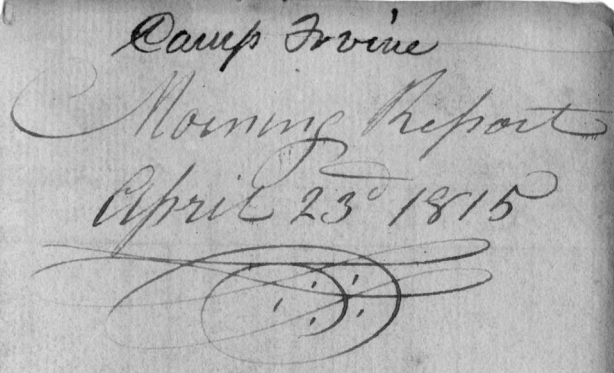 Camp Irvine
Morning Report
April 23d 1815